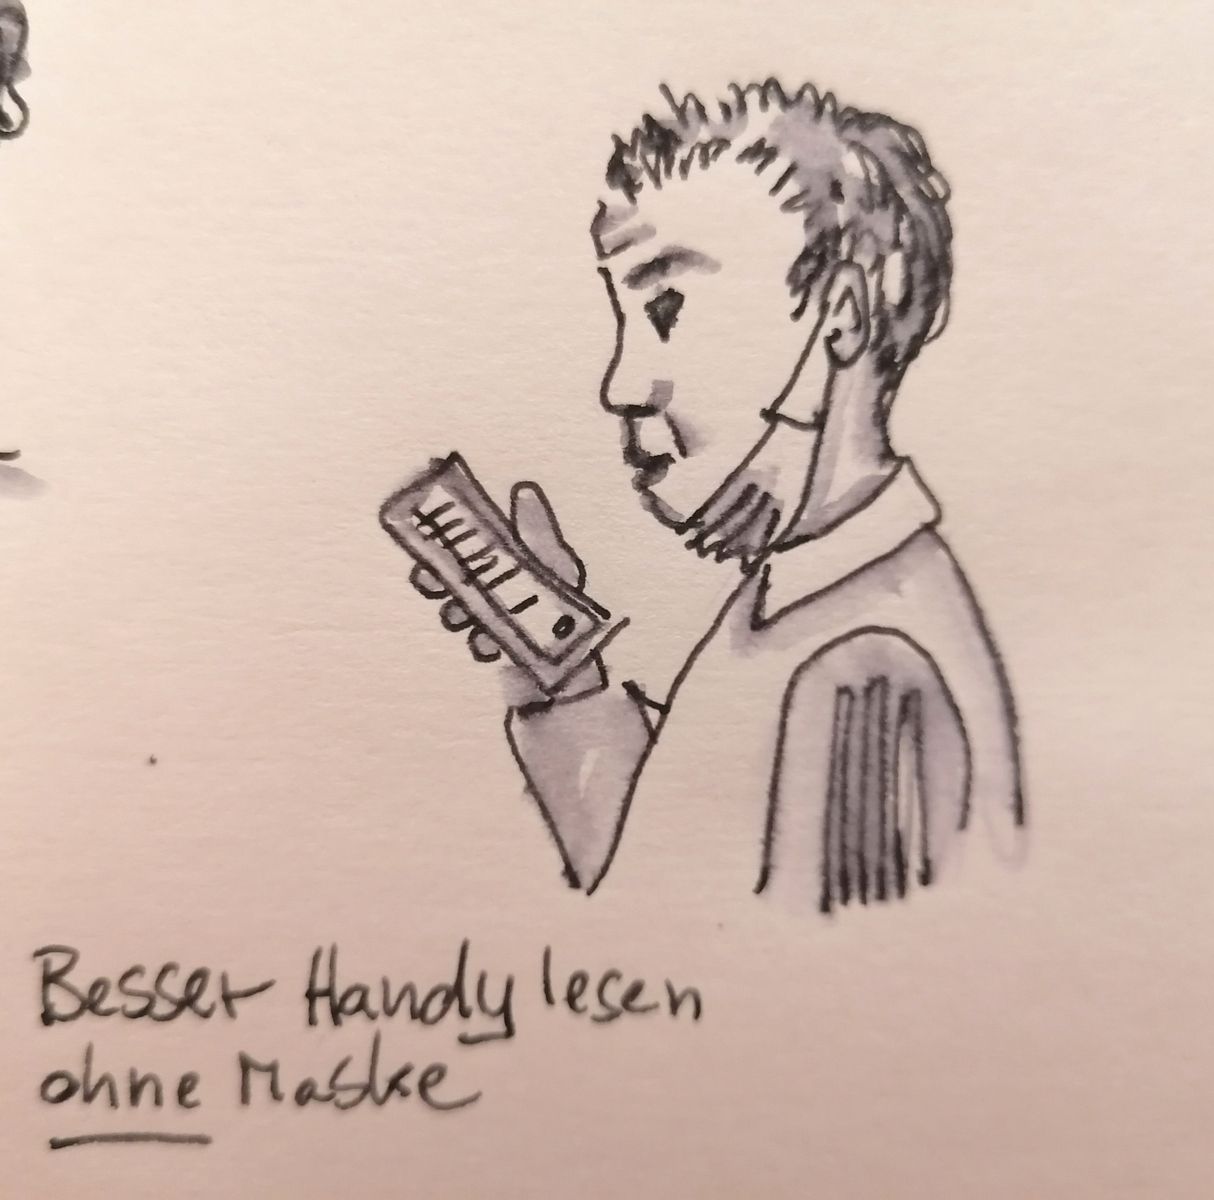 Besser Handy lesen
ohne Maske